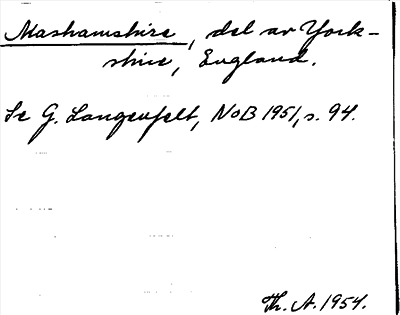 Mashamshire, del av York-
shire, England.
Se G. Langenfelt, NoB 1951, s. 94.
Th. A. 1954.